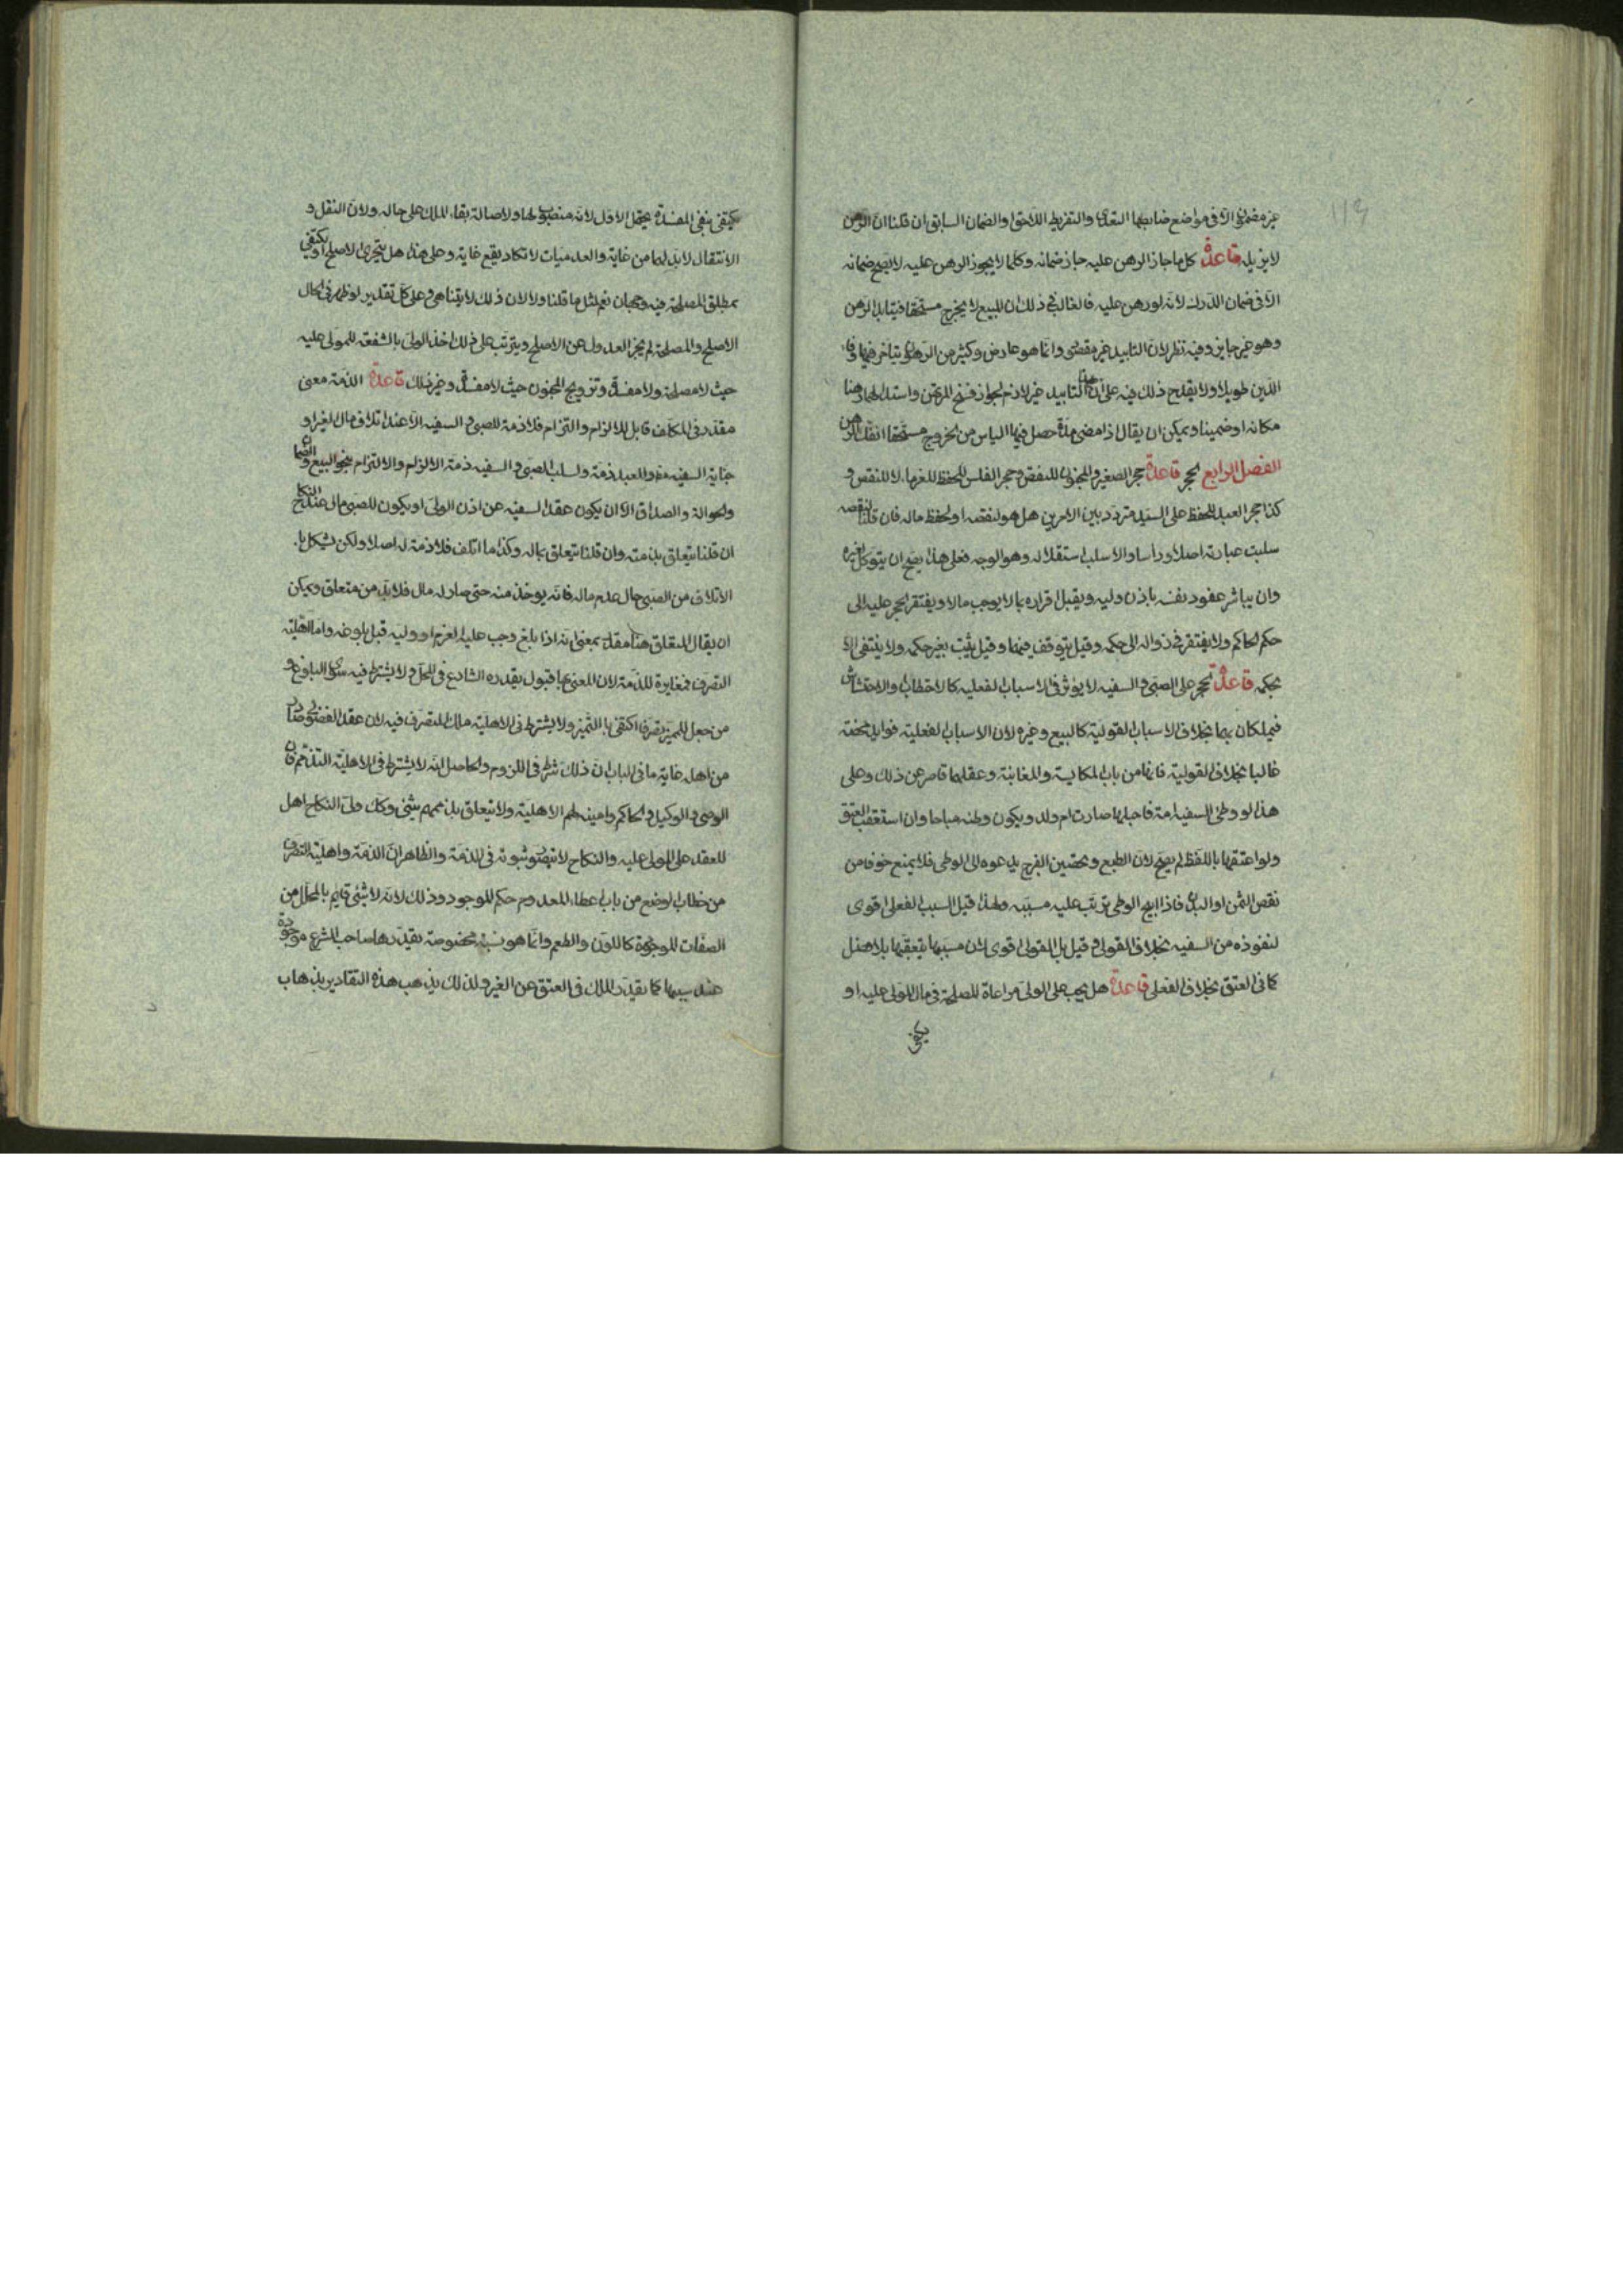 ١١٣
غير مضمون الا فى مواضع ضابطها التعدى والتفريط اللاحق او الضمان السابق ان قلنا ان الرهن
لا يزيله قاعدة كل ما جاز الرهن عليه جاز ضمانه وكلما لا يجوز الرهن عليه لا يصح ضمانه
الا فى ضمان الدرك لانه لو رهن عليه فالغالب فى ذلك ان المبيع لا يخرج مستحقا فيتابد الرهن
وهو غير جايز وفيه نظر لان التابيد غير مقتضى وانما هو عارض وكثير من الرهون يتاخر فيها وفاء
الدين طويلا ولا يقدح ذلك فيه على ان هذا التابيد غير لازم لجواز فسخ المرتهن واستبدالهما رهنا
مكانه او ضمينا ويمكن ان يقال اذا مضى مدة حصل فيها الياس من الخروج مستحقا انفك الرهن
الفصل الرابع الحجر قاعدة حجر الصغير والمجنون للنقص وحجر المفلس للحفظ للغرماء لا للنقص و
كذا حجر العبد للحفظ على السيد متردد بين الامرين هل هو لنقصه او لحفظ ماله فان قلنا لنقصه
سلبت عبارته اصلا وراسا والا سلب استقلاله وهو الوجه فعلى هذا يصح ان يتوكل لغيره
وان يباشر عقود نفسه باذن وليه ويقبل اقراره بما لا يوجب مالا ويفتقر الحجر عليه الى
حكم الحاكم ولا يفتقر فى زواله الى حكمه وقيل يتوقف فيهما وقيل يثبت بغير حكمه ولا ينتفى الا
بحكمه قاعدة الحجر على الصبى و السفيه لا يؤثر فى الاسباب الفعلية كالاحتطاب والاحتشاش
فيملكان بهما بخلاف الاسباب القولية كالبيع وغيره لان الاسباب الفعلية فوايد محضة
غالبا بخلاف القولية فانها من باب المكايسة والمغابنة وعقلهما قاصر عن ذلك وعلى
هذا لو وطئ السفيه امته فاحبلها صارت ام ولد ويكون وطئه مباحا وان استعقب العتق
ولو اعتقها باللفظ لم يصح لان الطبع وتحصين الفرج يدعوه الى الوطى فلا يمنع خوفا من
نقص الثمن او البدن فاذا ابيح الوطى ترتب عليه مسببه ولهذا قيل السبب الفعلى اقوى
لنفوذه من السفيه بخلاف القولى و قيل بل القولى اقوى لان مسببها يتعقبها بلا فصل
كما فى العتق بخلاف الفعلى قاعدة هل يجب على الولى مراعاة المصلحة فى مال المولى عليه او
يكتفى
يكتفى بنفى المفسدة يحتمل الاول لانه منصوب لها ولاصالة بقاء الملك على حاله ولان النقل و
الانتقال لا بد لهما من غاية والعدميات لا تكاد يقع غاية وعلى هذا هل يتحرى الاصلح او يكتفى
بمطلق المصلحة فيه وجهان نعم لمثل ما قلنا ولا لان ذلك لا يتناهى وعلى كل تقدير لو ظهر فى الحال
الاصلح والمصلحة لم يجز العدول عن الاصلح ويترتب على ذلك اخذ الولى بالشفعة للمولى عليه
حيث لا مصلحة ولا مفسدة وتزويج المجنون حيث لا مفسدة وغير ذلك قاعدة الذمة معنى
مقدر فى المكلف قابل للالزام والتزام فلا ذمة للصبى و السفيه الا عند اتلاف مال الغير او
جناية السفيه عمدا وللعبد ذمة ولسلب الصبى و السفيه ذمة الالزام والالتزام بنحو البيع والضمان
والحوالة والصداق الا ان يكون عقد السفيه عن اذن الولى او يكون للصبى مال عند النكاح
ان قلنا يتعلق بذمته وان قلنا يتعلق بماله وكذا ما اتلف فلا ذمة له اصلا ولكن يشكل با
الاتلاف من الصبى حال عدم ماله فانه يوخذ منه حتى صار له مال فلا بد من متعلق ويمكن
ان يقال المتعلق هنا مقدر بمعنى انه اذا بلغ وجب عليه الغرم او وليه قبل بلوغه واما اهلية
التصرف فمغايرة للذمة لان المعنى بها قبول يقدره الشارع فى المحل و لا يشترط فيه سوى البلوغ و
من جعل للمميز تصرفا اكتفى باالتميز ولا يشترط فى الاهلية ملك المتصرف فيه لان عقد الفضولى صادر
من اهله غاية ما فى الباب ان ذلك شرط فى اللزوم والحاصل انه لا يشترط فى الاهلية التذمم فان
الوصى و الوكيل و الحاكم وامينه لهم الاهلية ولا يتعلق بذممهم شيئ وكك ولى النكاح اهل
للعقد على المولى عليه والنكاح لا يتصور ثبوته فى الذمة والظاهر ان الذمة واهلية التصرف
من خطاب الوضع من باب اعطاء المعدوم حكم الموجود وذلك لانه لا شئى قايم بالمحل من
الصفات الموجودة كاللون والطعم وانما هو نسبة مخصوصة يقدرها صاحب الشرع موجودة
عند سببها كما يقدر الملك فى العتق عن الغير ولذلك يذهب هذه التقادير بذهاب